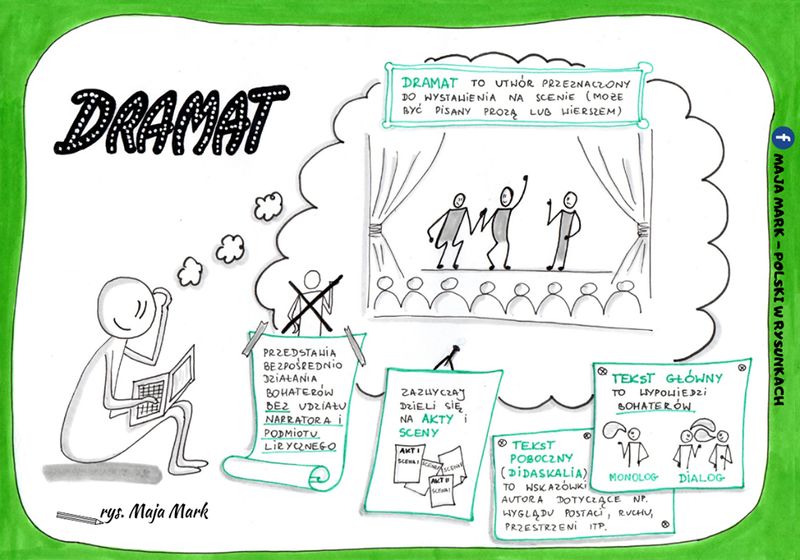 DRAMAT
DRAMAT TO UTWÓR PRZEZNACZONY
DO WYSTAWIENIA NA SCENIE (MOŻE
BYĆ PISANY PROZĄ LUB WIERSZEM)
PRZEDSTAWIA
BEZPOŚREDNIO
DZIAŁANIA
BOHATERÓW
BEZ UDZIAŁU
NARRATORA I
PODMIOTU
LIRYCZNEGO
ZAZWYCZAJ
DZIELI SIĘ
NA AKTY I
SCENY
AKT I
SCENA 1
SCENA
SCENA
AKT II
SCENA 1
TEKST
POBOCZNY
(DIDASKALIA)
TO WSKAZÓWKI
AUTORA DOTYCZĄCE NP.
WYGLĄDU POSTACI, RUCHU,
PRZESTRZENI ITP.
TEKST GŁÓWNY
TO WYPOWIEDZI
BOHATERÓW
MONOLOG
DIALOG
rys. Maja Mark
f MAJA MARK - POLSKI W RYSUNKACH